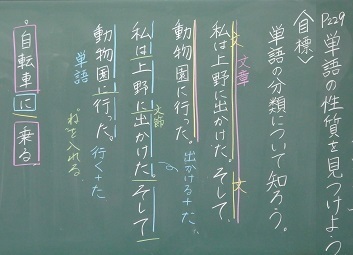 P229 単語の性質を見つけよう
〈目標〉
単語の分類について知ろう。
文章
文
文
私は上野に出かけた。そして
動物園に行った。
出かける+た
文節
私は上野に出かけた。そして
動物園に行った。行く+た
単語
"ね"を入れる
。自転車に乗る